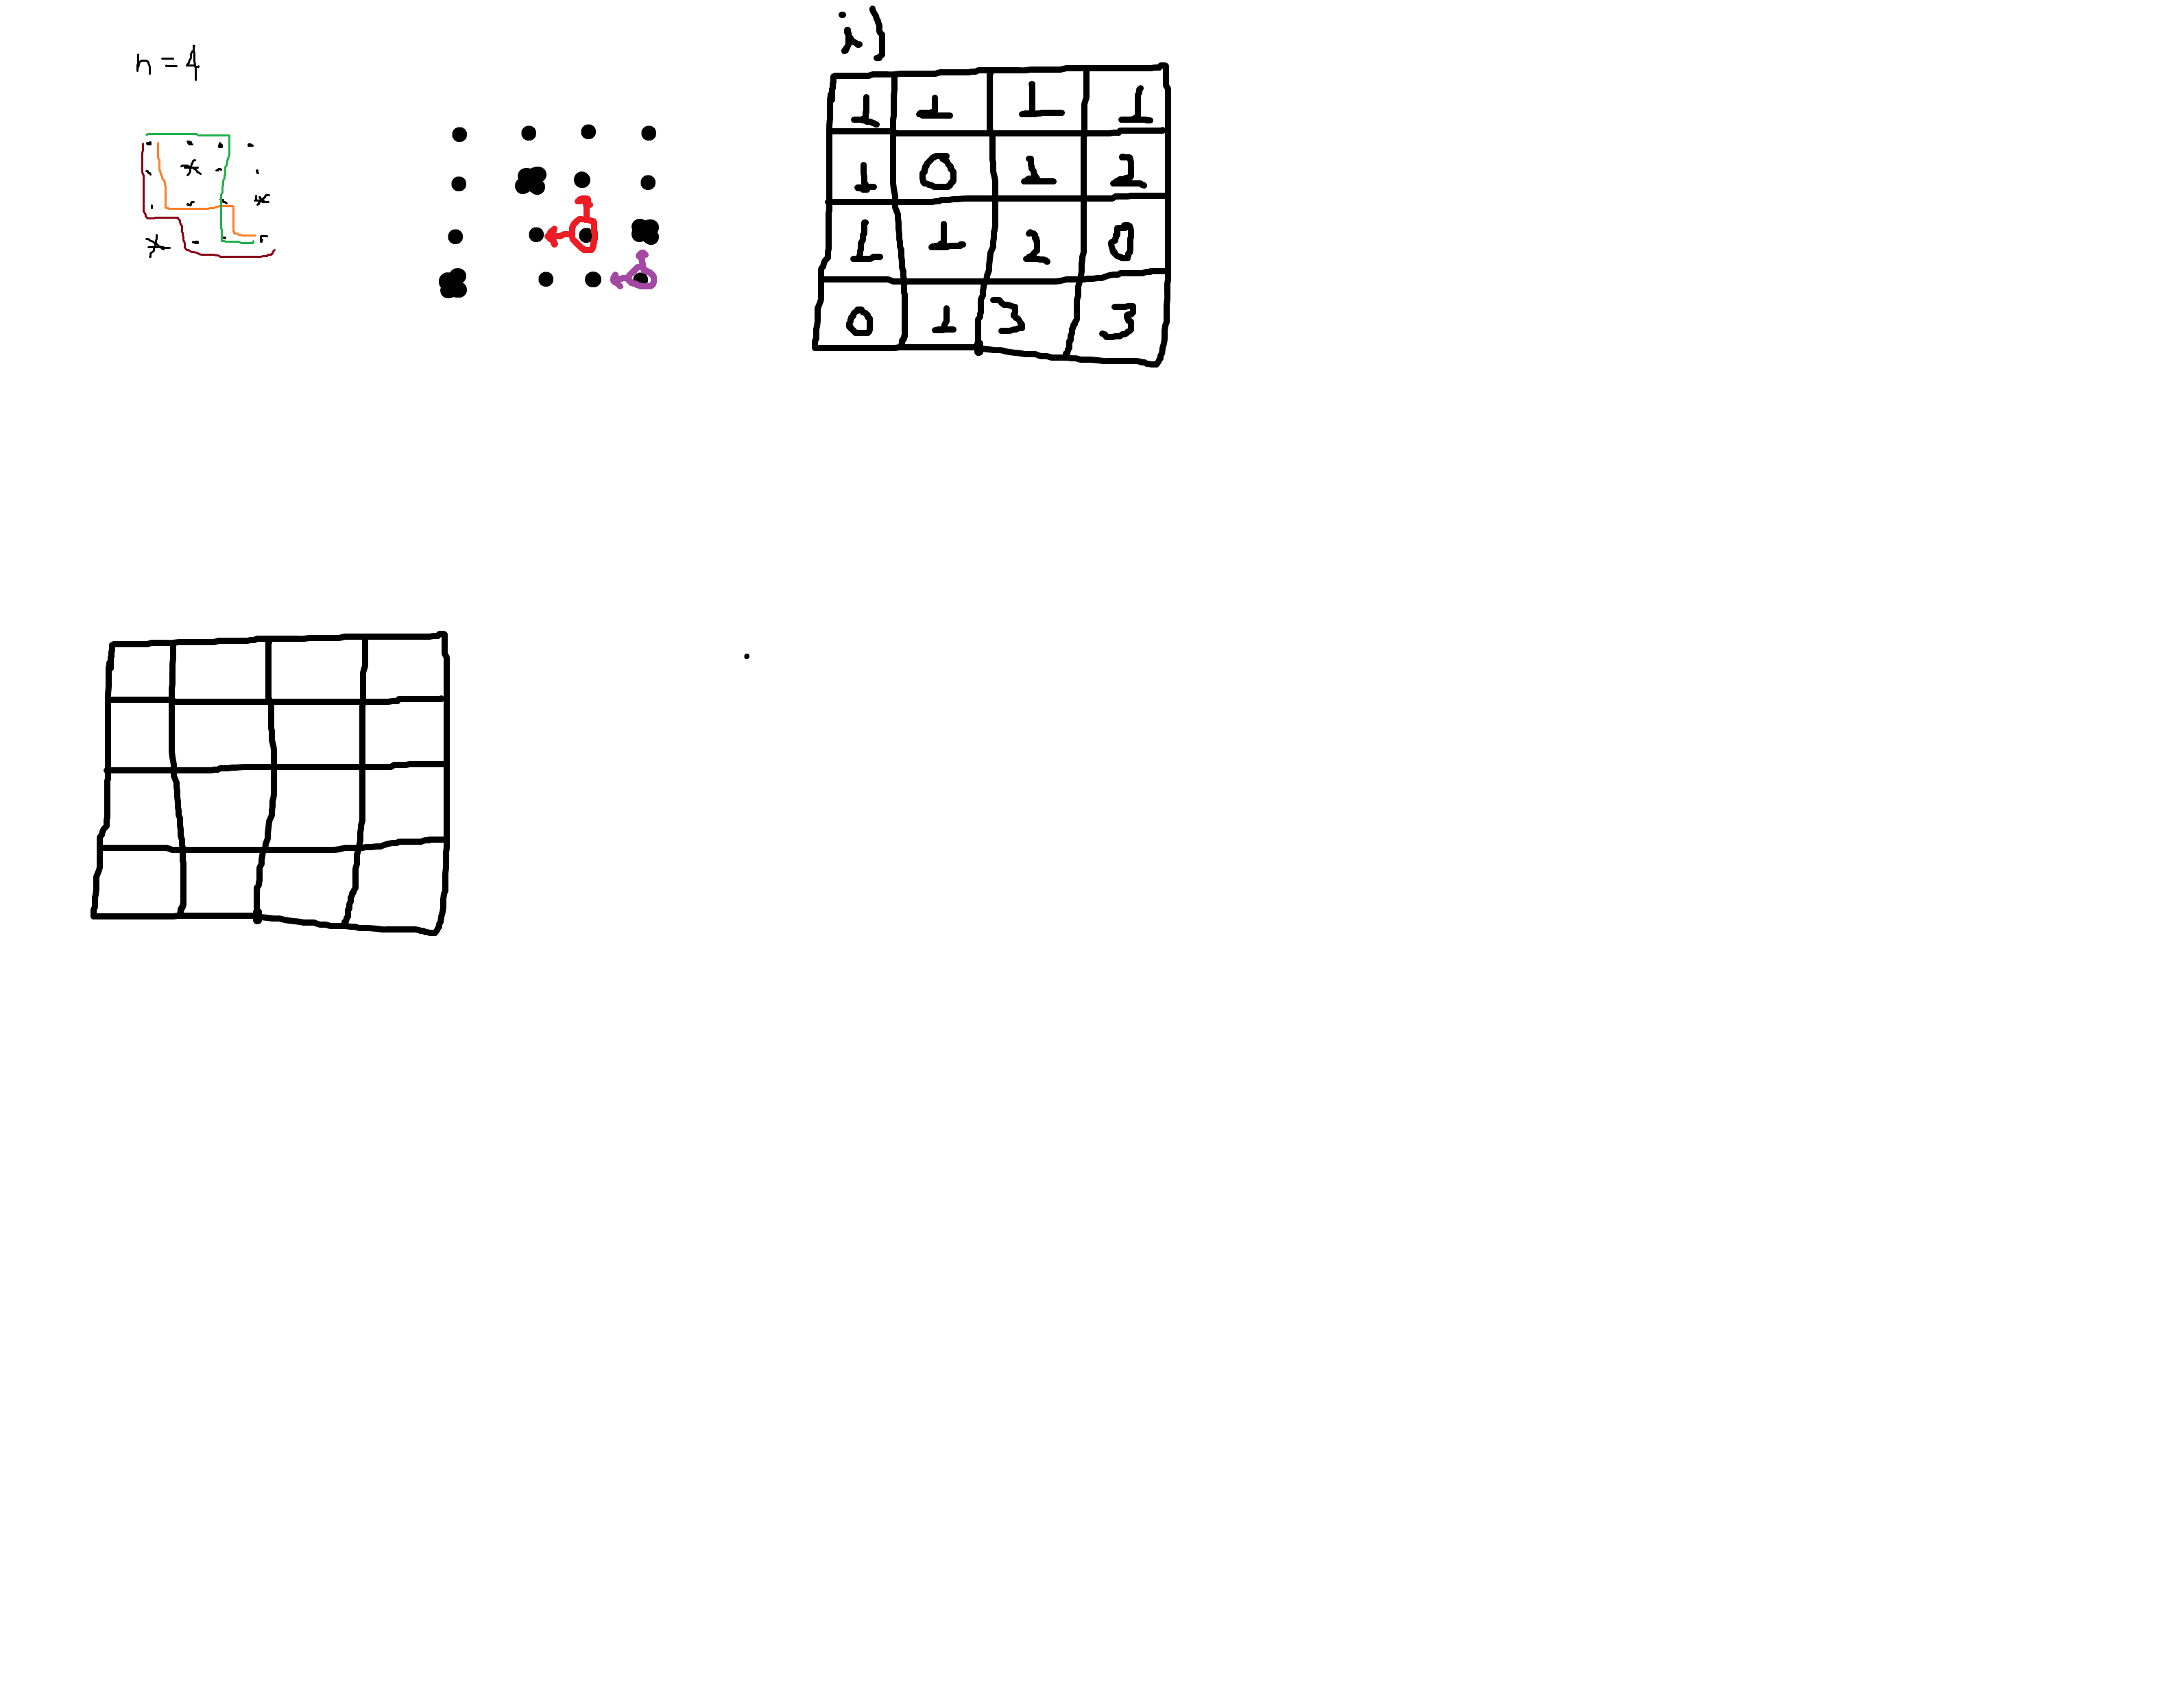 n=4
i)
1 1 1 1
1 0 1 2
1 1 2 0
0 1 3 3